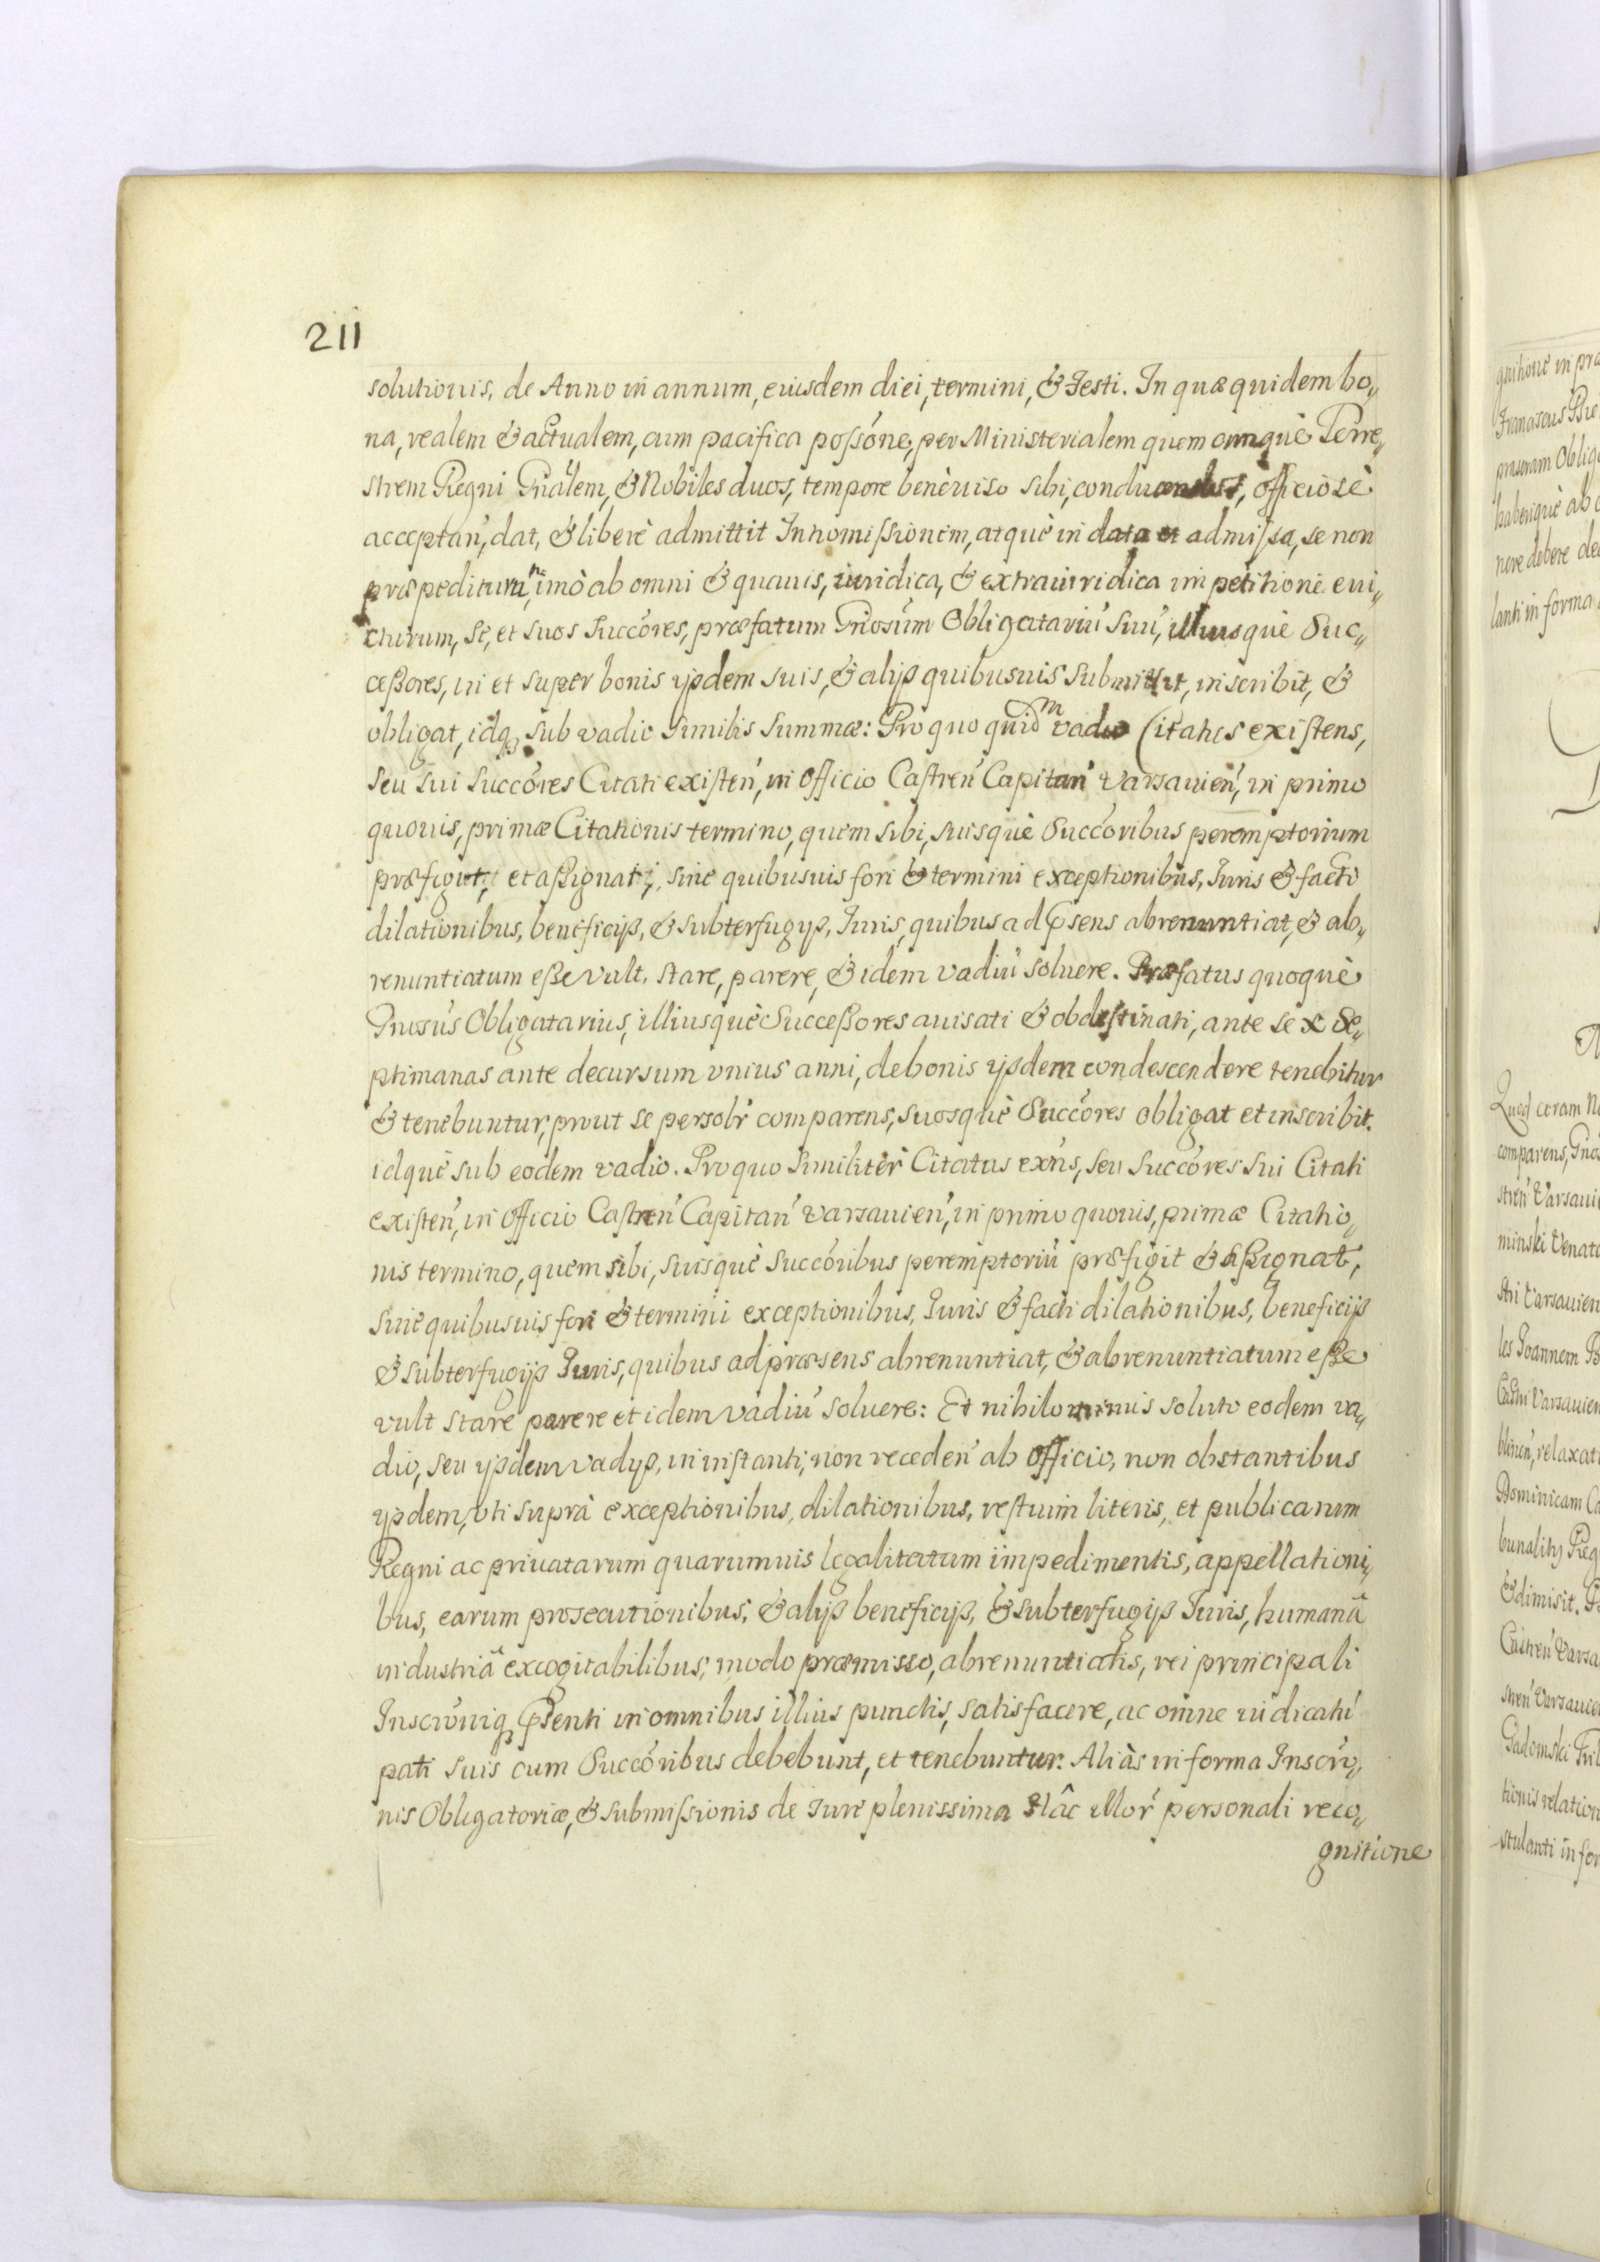 211
solutionis, de Anno in annum, eiusdem diei, termini, & Festi. In quæ quidem bo„
na, realem & actualem, cum pacifica possóne, per Ministerialem quem cunquè Terre„
strem Regni Gnãlem, & Nobiles duos, tempore benèuiso sibi, officiosè
acceptan', dat, & liberè admittit Intromissionem, atquè in data et admissa, se non
præpeditur imò ab omni & quauis, iuridica, & extraiuridica impetitione eui„
cturum, se, et suos Succóres, præfatum Gñosúm Obligatariú suú, illiusquè Suc„
cessores, in et super bonis ijsdem suis, & alijs quibusuis submittit, inscribit, &
obligat, idq, sub vadio similis summæ: Pro quo quidm vadio Citatus existens,
seu sui Succóres Citati existen', in Officio Castren' Capitan' Varsauien', in primo
quouis, primæ Citationis termino, quem sibi, suisquè Succóribus peremptorium
præfigit, et assignat, sine quibusuis fori & termini exceptionibus, Iuris & facti
dilationibus, beneficijs, & subterfugijs, Iuris, quibus ad psens abrenuntiat, & ab„
renuntiatum esse vult, stare, parere, & idem vadiú soluere. Præfatus quoquè
Gnosús Obligatarius, illiusquè Successores auisati & obdestinati, ante sex Se„
ptimanas ante decursum vnius anni, de bonis ijsdem condescendere tenebitur
& tenebuntur, prout se persolr comparens, suosquè Succóres obligat et inscribit.
idquè sub eodem vadio. Pro quo similitèr Citatus exns, seu Succóres sui Citati
existen', in Officio Castren' Capitan' Varsauien', in primo quouis, primæ Citatio„
nis termino, quem sibi, suisquè Succóribus peremptoriú præfigit & assignat,
sinè quibusuis fori & termini exceptionibus, Iuris & facti dilationibus, beneficijs
& subterfugijs Iuris, quibus ad præsens abrenuntiat, & abrenuntiatum esse
vult stare parere et idem vadiú soluere: Et nihilominus soluto eodem va„
dio, seu ijsdem vadijs, in instanti, non receden' ab Officio, non obstantibus
ijsdem, vti suprà exceptionibus, dilationibus, restuim literis, et publicarum
Regni ac priuatarum quarumuis legalitatum impedimentis, appellationi„
bus, earum prosecutionibus, & alijs beneficijs, & subterfugijs Iuris, humanâ
industriâ excogitabilibus, modo præmisso, abrenuntiatis, rei principali
Inscrõniq psenti in omnibus illius punctis, satisfacere, ac omne iudicatú
pati suis cum Succóribus debebunt, et tenebuntur. Aliàs in forma Inscró„
nis Obligatoriæ, & submissionis de iure plenissima Hâc illor personali reco„
gnitione